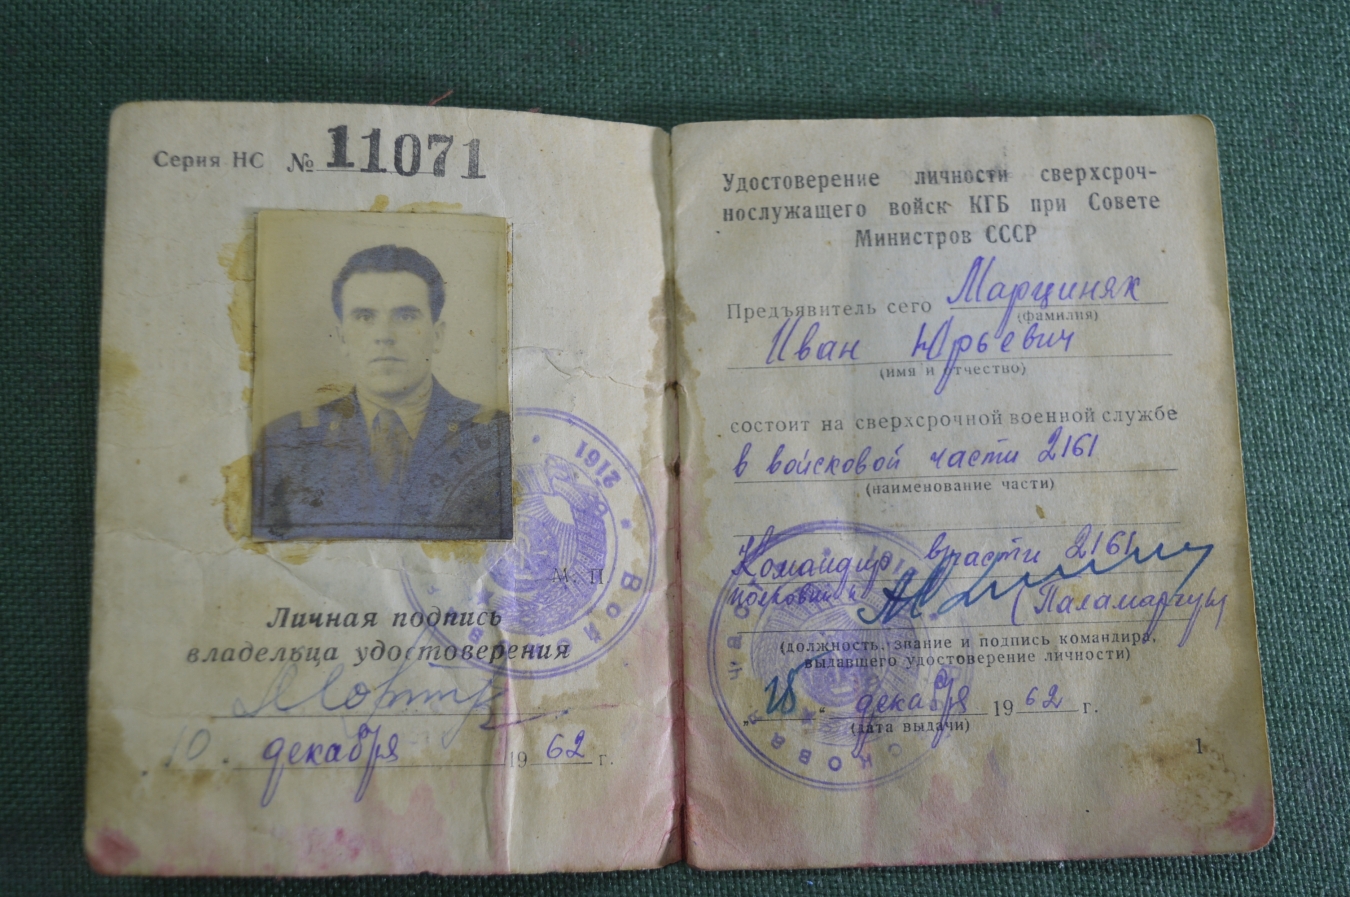 Серия НС № 11071
2161 * Войсковая
М. П.
Личная подпись
владельца удостоверения
10 декабря 1962 г.
Удостоверение личности сверхсроч-
нослужащего войск КГБ при Совете
Министров СССР
Предъявитель сего Марциняк
(фамилия)
Иван Юрьевич
(имя и отчество)
состоит на сверхсрочной военной службе
в войсковой части 2161
(наименование части)
Командир в/части 2161
полковник (Паламарчук)
(должность, звание и подпись командира,
выдавшего удостоверение личности)
„18“ декабря 1962 г.
(дата выдачи)
1